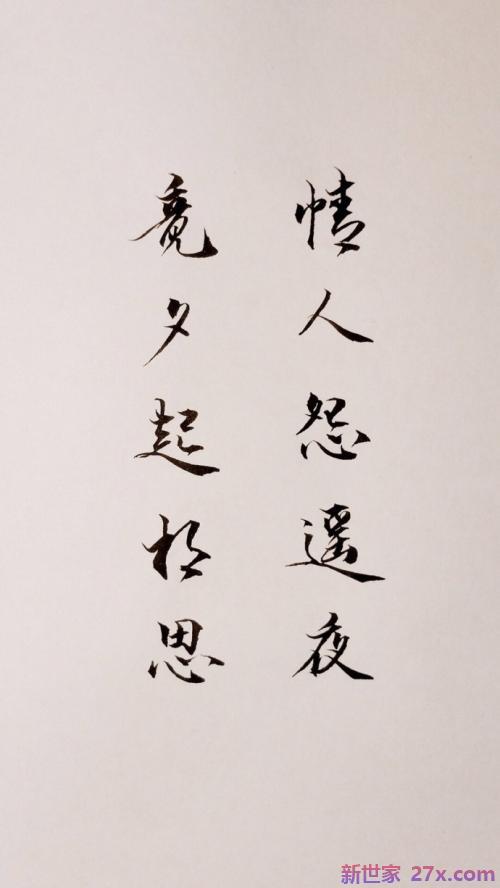 情人怨遥夜
竟夕起相思
新世家 27x.com